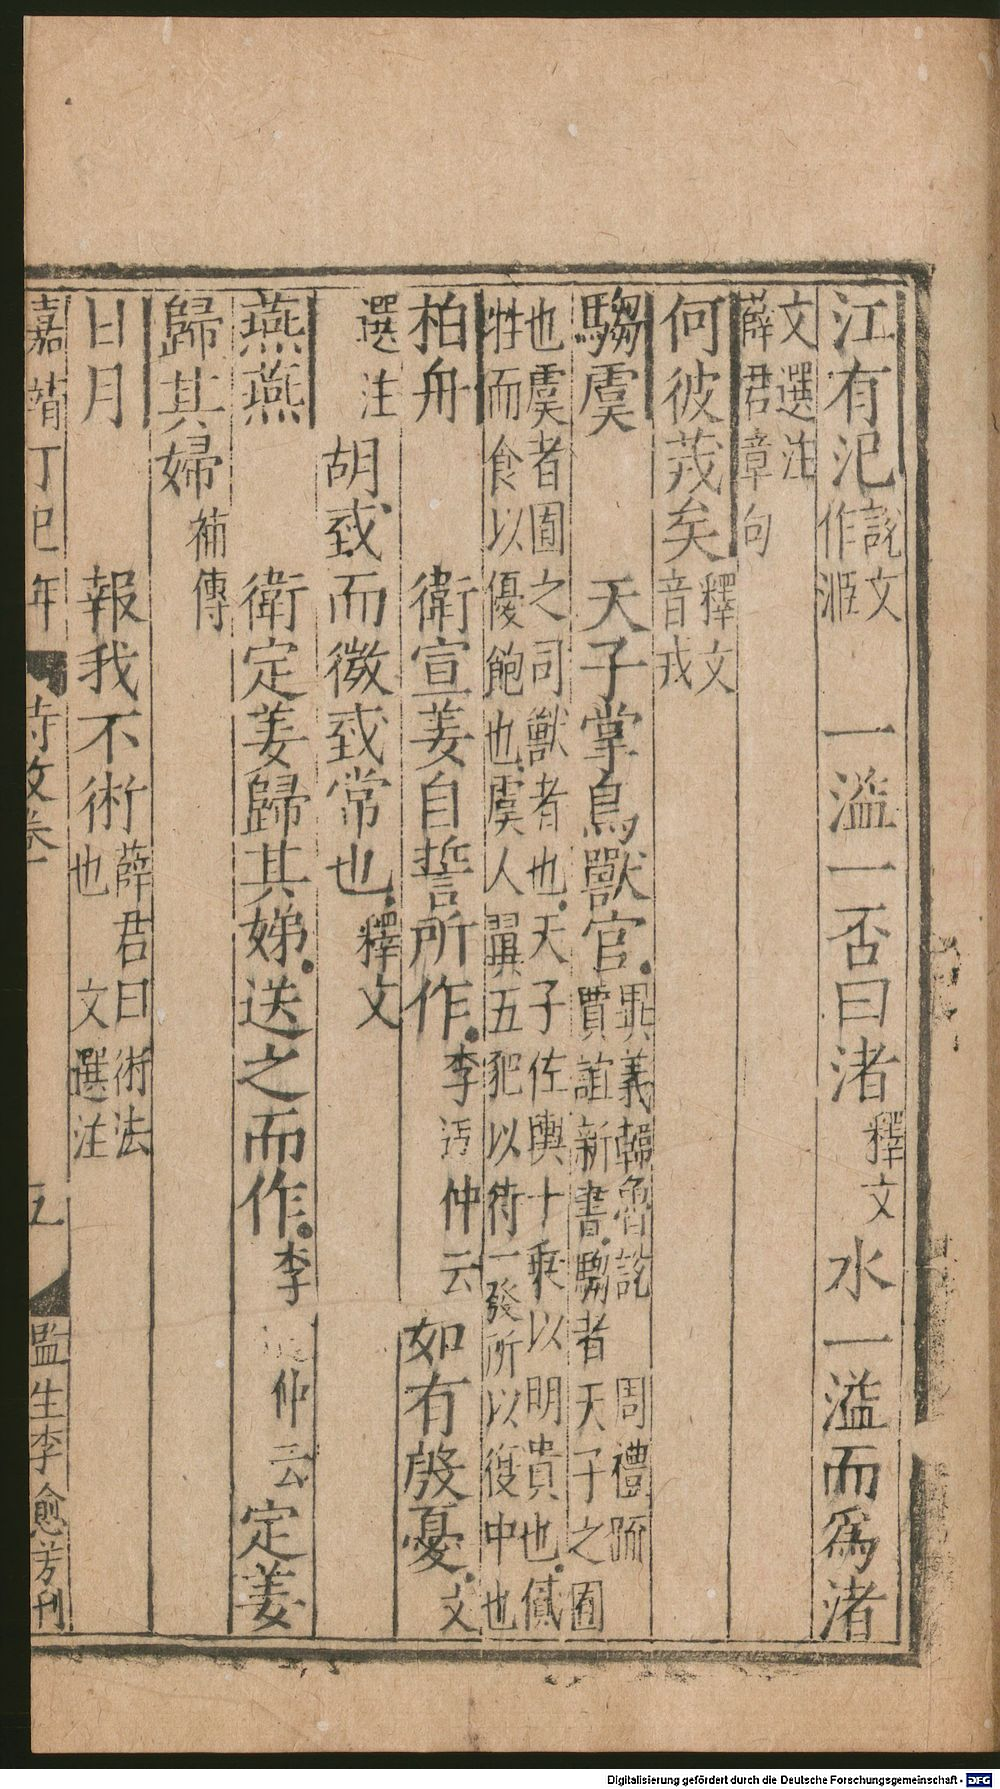 江有汜說文作洍 一溢一否曰渚釋文 水一溢而爲渚
文選注薛君章句
何彼茙矣釋文音戎
騶虞 天子掌鳥獸官異義韓魯說 周禮疏 賈誼新書騶者天子之囿
也虞者囿之司獸者也天子佐輿十乘以明貴也貳牲而食以優飽也虞人翼五豝以待一發所以復中也
柏舟 衛宣姜自誓所作李迃仲云 如有殷憂文
選注 胡𢧤而微𢧤常也釋文
燕燕 衛定姜歸其娣送之而作李 仲云 定姜
歸其婦補傳
日月 報我不術薛君曰術法也 文選注
嘉靖丁巳年 詩攷卷一 五 監生李愈芳刊
Digitalisierung gefördert durch die Deutsche Forschungsgemeinschaft - DFG